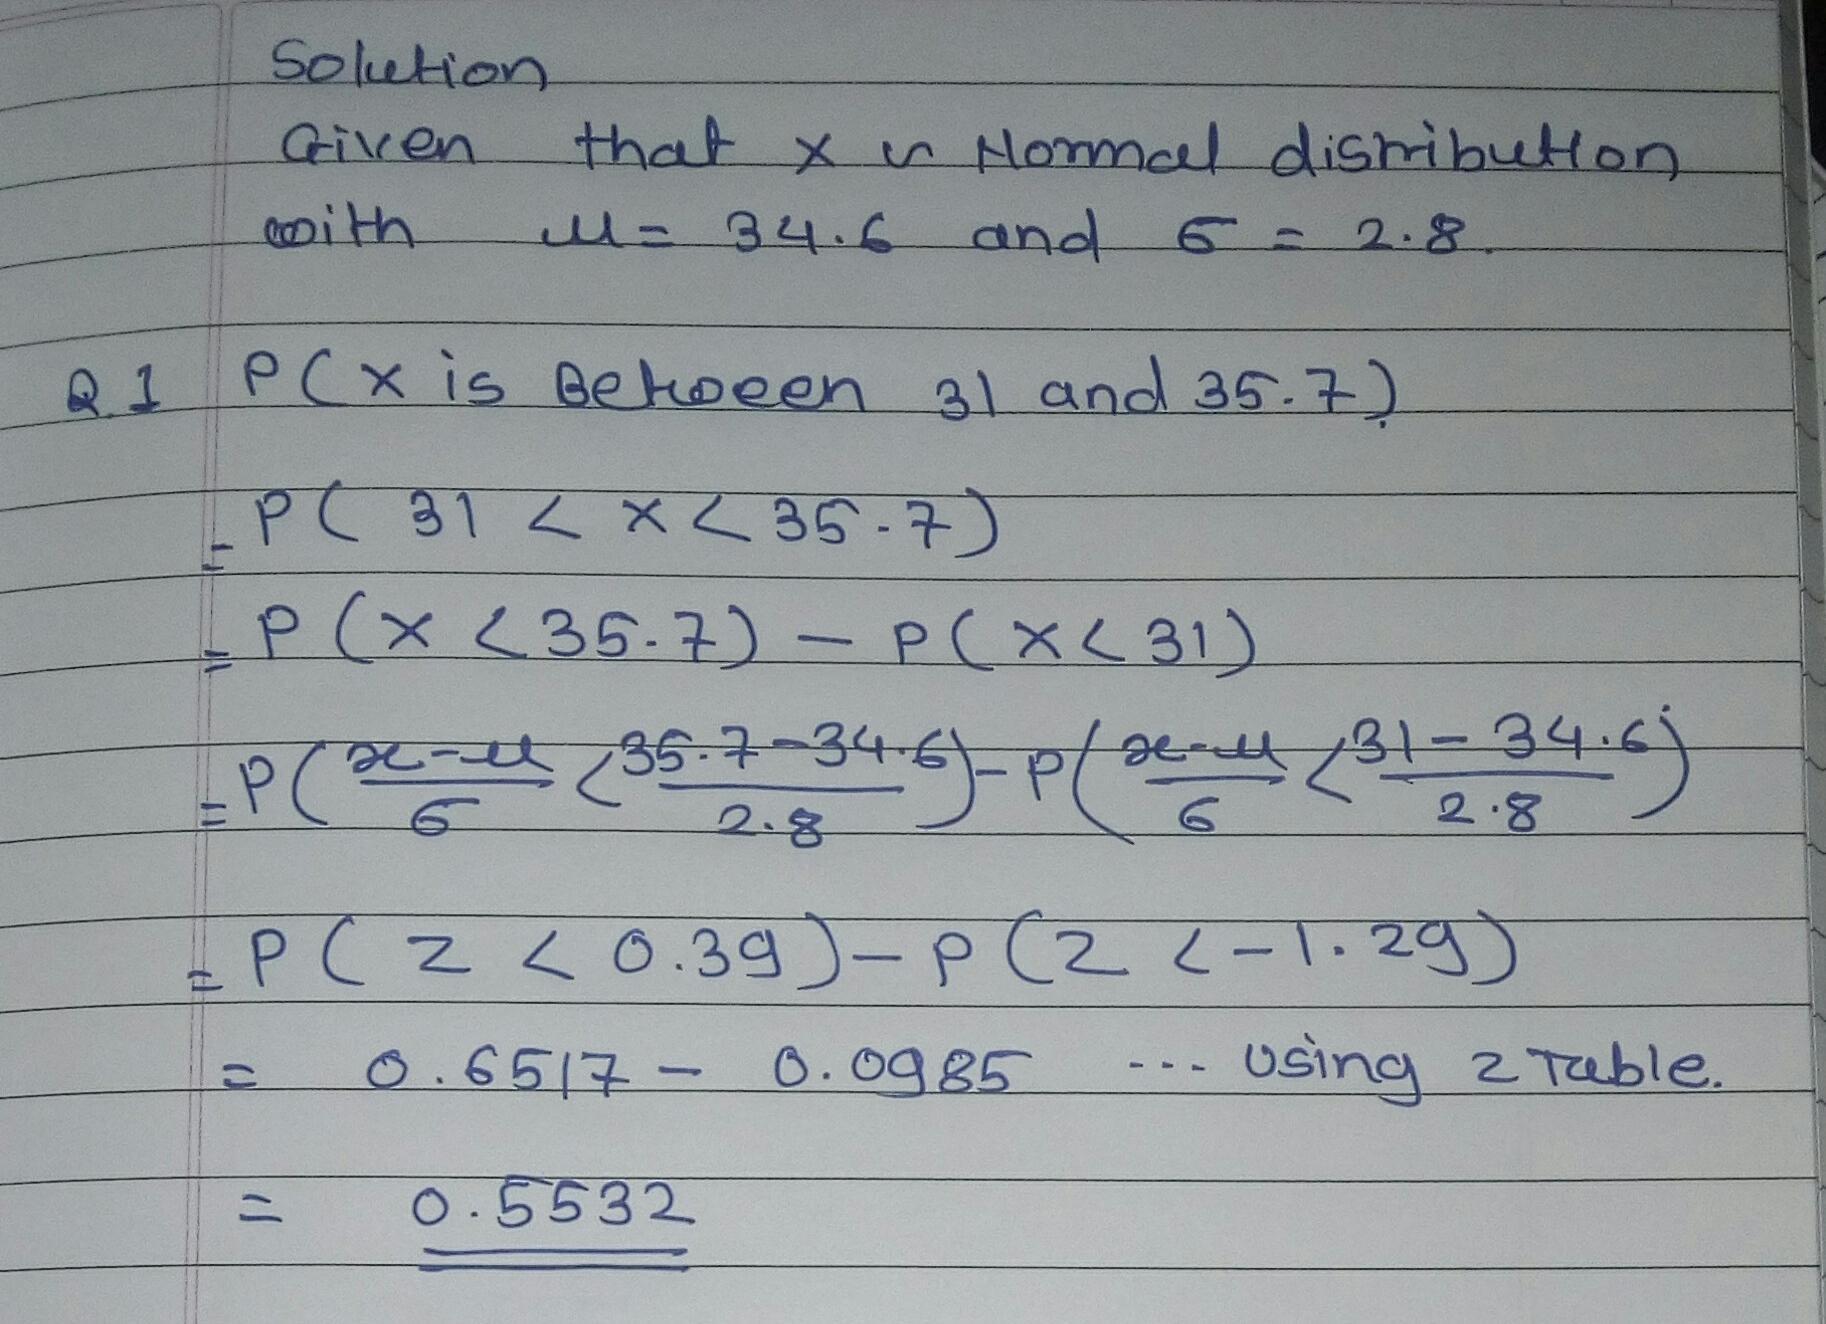 Solution
Given that x is Normal distribution
with μ = 34.6 and σ = 2.8.
Q.1 P(x is Between 31 and 35.7)
= P( 31 < x < 35.7)
= P(x < 35.7) - P(x < 31)
= P( (x-μ)/σ < (35.7-34.6)/2.8 ) - P( (x-μ)/σ < (31-34.6)/2.8 )
= P( z < 0.39 ) - P( z < -1.29)
= 0.6517 - 0.0985 ... Using z Table.
= 0.5532